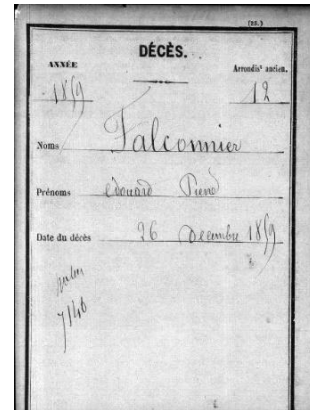 (22.)
DÉCÈS.
ANNÉE
Arrondisᵗ ancien.
1859
12
Noms Falconnier
Prénoms edouard Pierre
Date du décès 26 Decembre 1859
7140